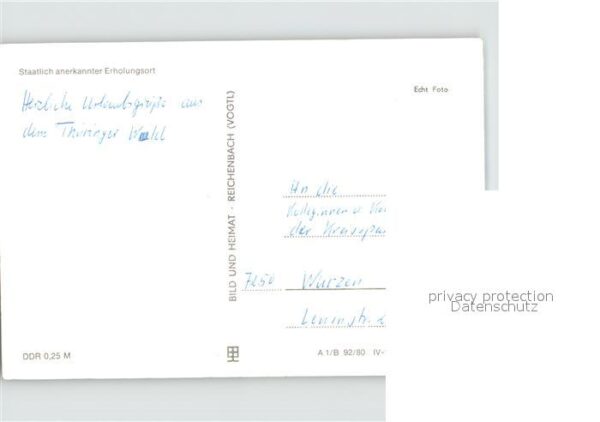 Staatlich anerkannter Erholungsort
Herzliche Urlaubsgrüße aus
dem Thüringer Wald
BILD UND HEIMAT · REICHENBACH (VOGTL)
Echt Foto
An die
Kolleginnen u. Ko
der
7250 Wurzen
Leninstr. 2
DDR 0,25 M
A 1/B 92/80 IV-
privacy protection
Datenschutz